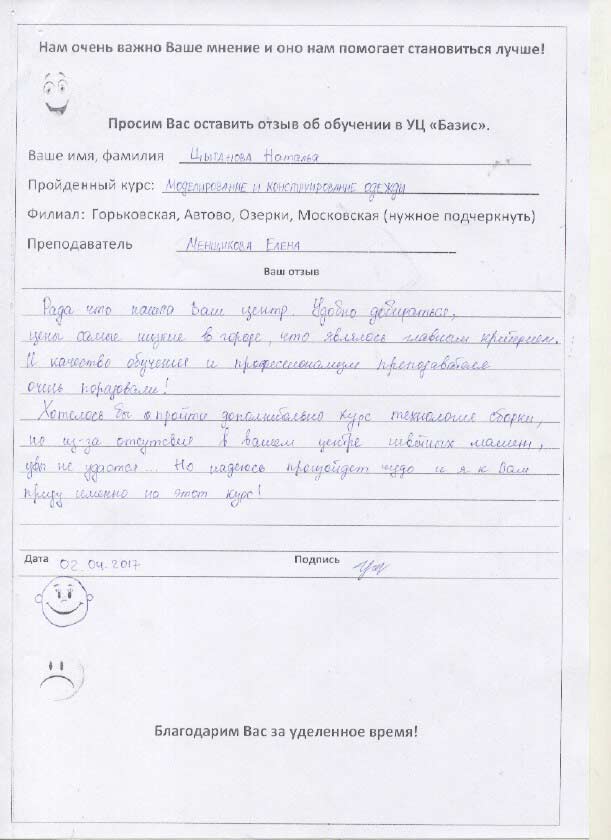 Нам очень важно Ваше мнение и оно нам помогает становиться лучше!
Просим Вас оставить отзыв об обучении в УЦ «Базис».
Ваше имя, фамилия Цыганова Наталья
Пройденный курс: Моделирование и конструирование одежды
Филиал: Горьковская, Автово, Озерки, Московская (нужное подчеркнуть)
Преподаватель Менщикова Елена
Ваш отзыв
Рада что нашла Ваш центр. Удобно добираться,
цены самые низкие в городе, что являлось главным критерием.
И качество обучения и профессионализм преподавателя
очень порадовали!
Хотелось бы пройти дополнительно курс технология сборки,
но из-за отсутствия в вашем центре швейных машин,
увы не удастся... Но надеюсь произойдет чудо и я к Вам
приду именно на этот курс!
Дата 02.04.2017 Подпись
Благодарим Вас за уделенное время!